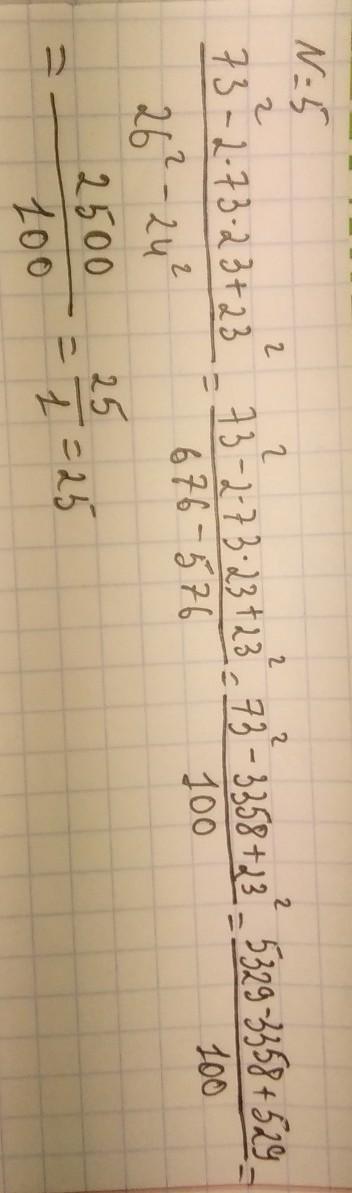 N-5
73² - 2·73·23 + 23² / 26² - 24² = 73² - 2·73·23 + 23² / 676 - 576 = 73² - 3358 + 23² / 100 = 5329 - 3358 + 529 / 100 =
= 2500 / 100 = 25 / 1 = 25